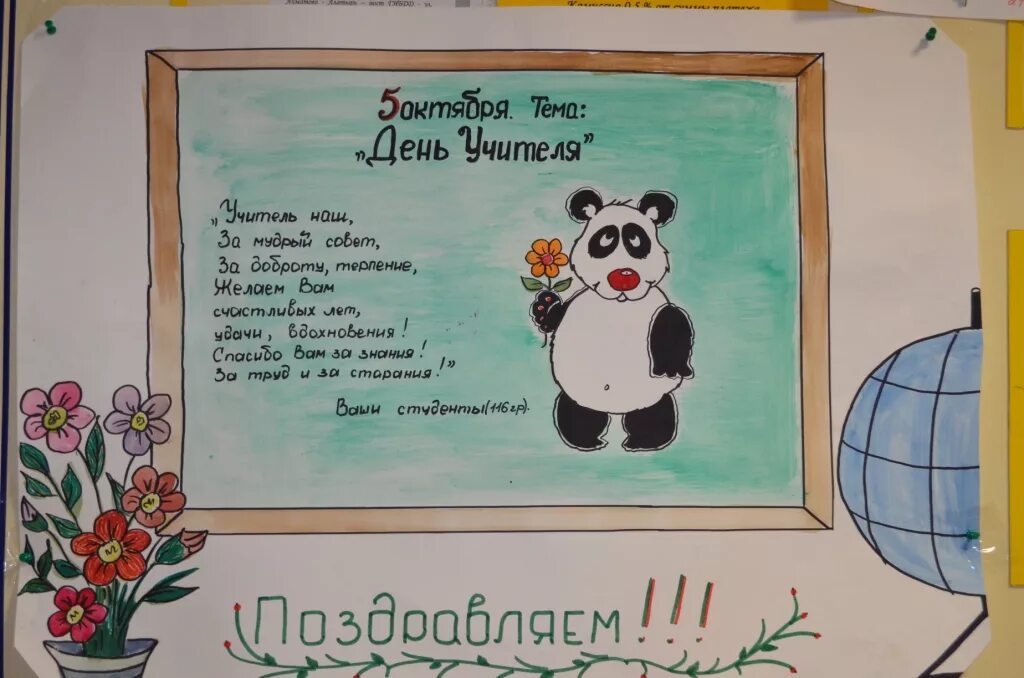 Комиссия 0,5 % от суммы платежа
5 октября. Тема:
„День Учителя”
„Учитель наш,
За мудрый совет,
За доброту, терпение,
Желаем Вам
счастливых лет,
удачи, вдохновения!
Спасибо Вам за знания!
За труд и за старания!”
Ваши студенты(116гр).
Поздравляем!!!